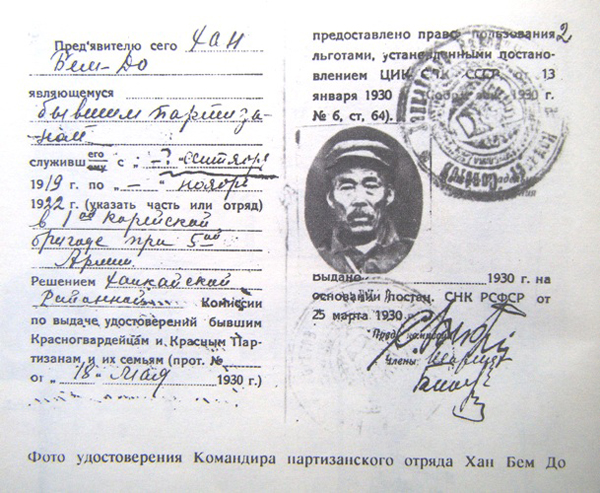 Пред'явителю сего Хан
Бем-До
являющемуся
бывшим партиза-
ном
служивш его ему с „-?" октября
1919 г. по „—" ноябрь
1922 г. (указать часть или отряд)
в 1ой Корейской
бригаде при 5ой
Армии
Решением Ханкайской
Районной Комиссии
по выдаче удостоверений бывшим
Красногвардейцам и Красным Пар-
тизанам и их семьям (прот. №
от „18" мая 1930 г.)
2
предоставлено право пользования
льготами, установленными постано-
влением ЦИК СНК СССР от 13
января 1930 г. (Собр. зак. 1930 г.
№ 6, ст. 64).
Выдано 1930 г. на
основании постан. СНК РСФСР от
25 марта 1930 г.
Пред. комиссии
Члены
Фото удостоверения Командира партизанского отряда Хан Бем До